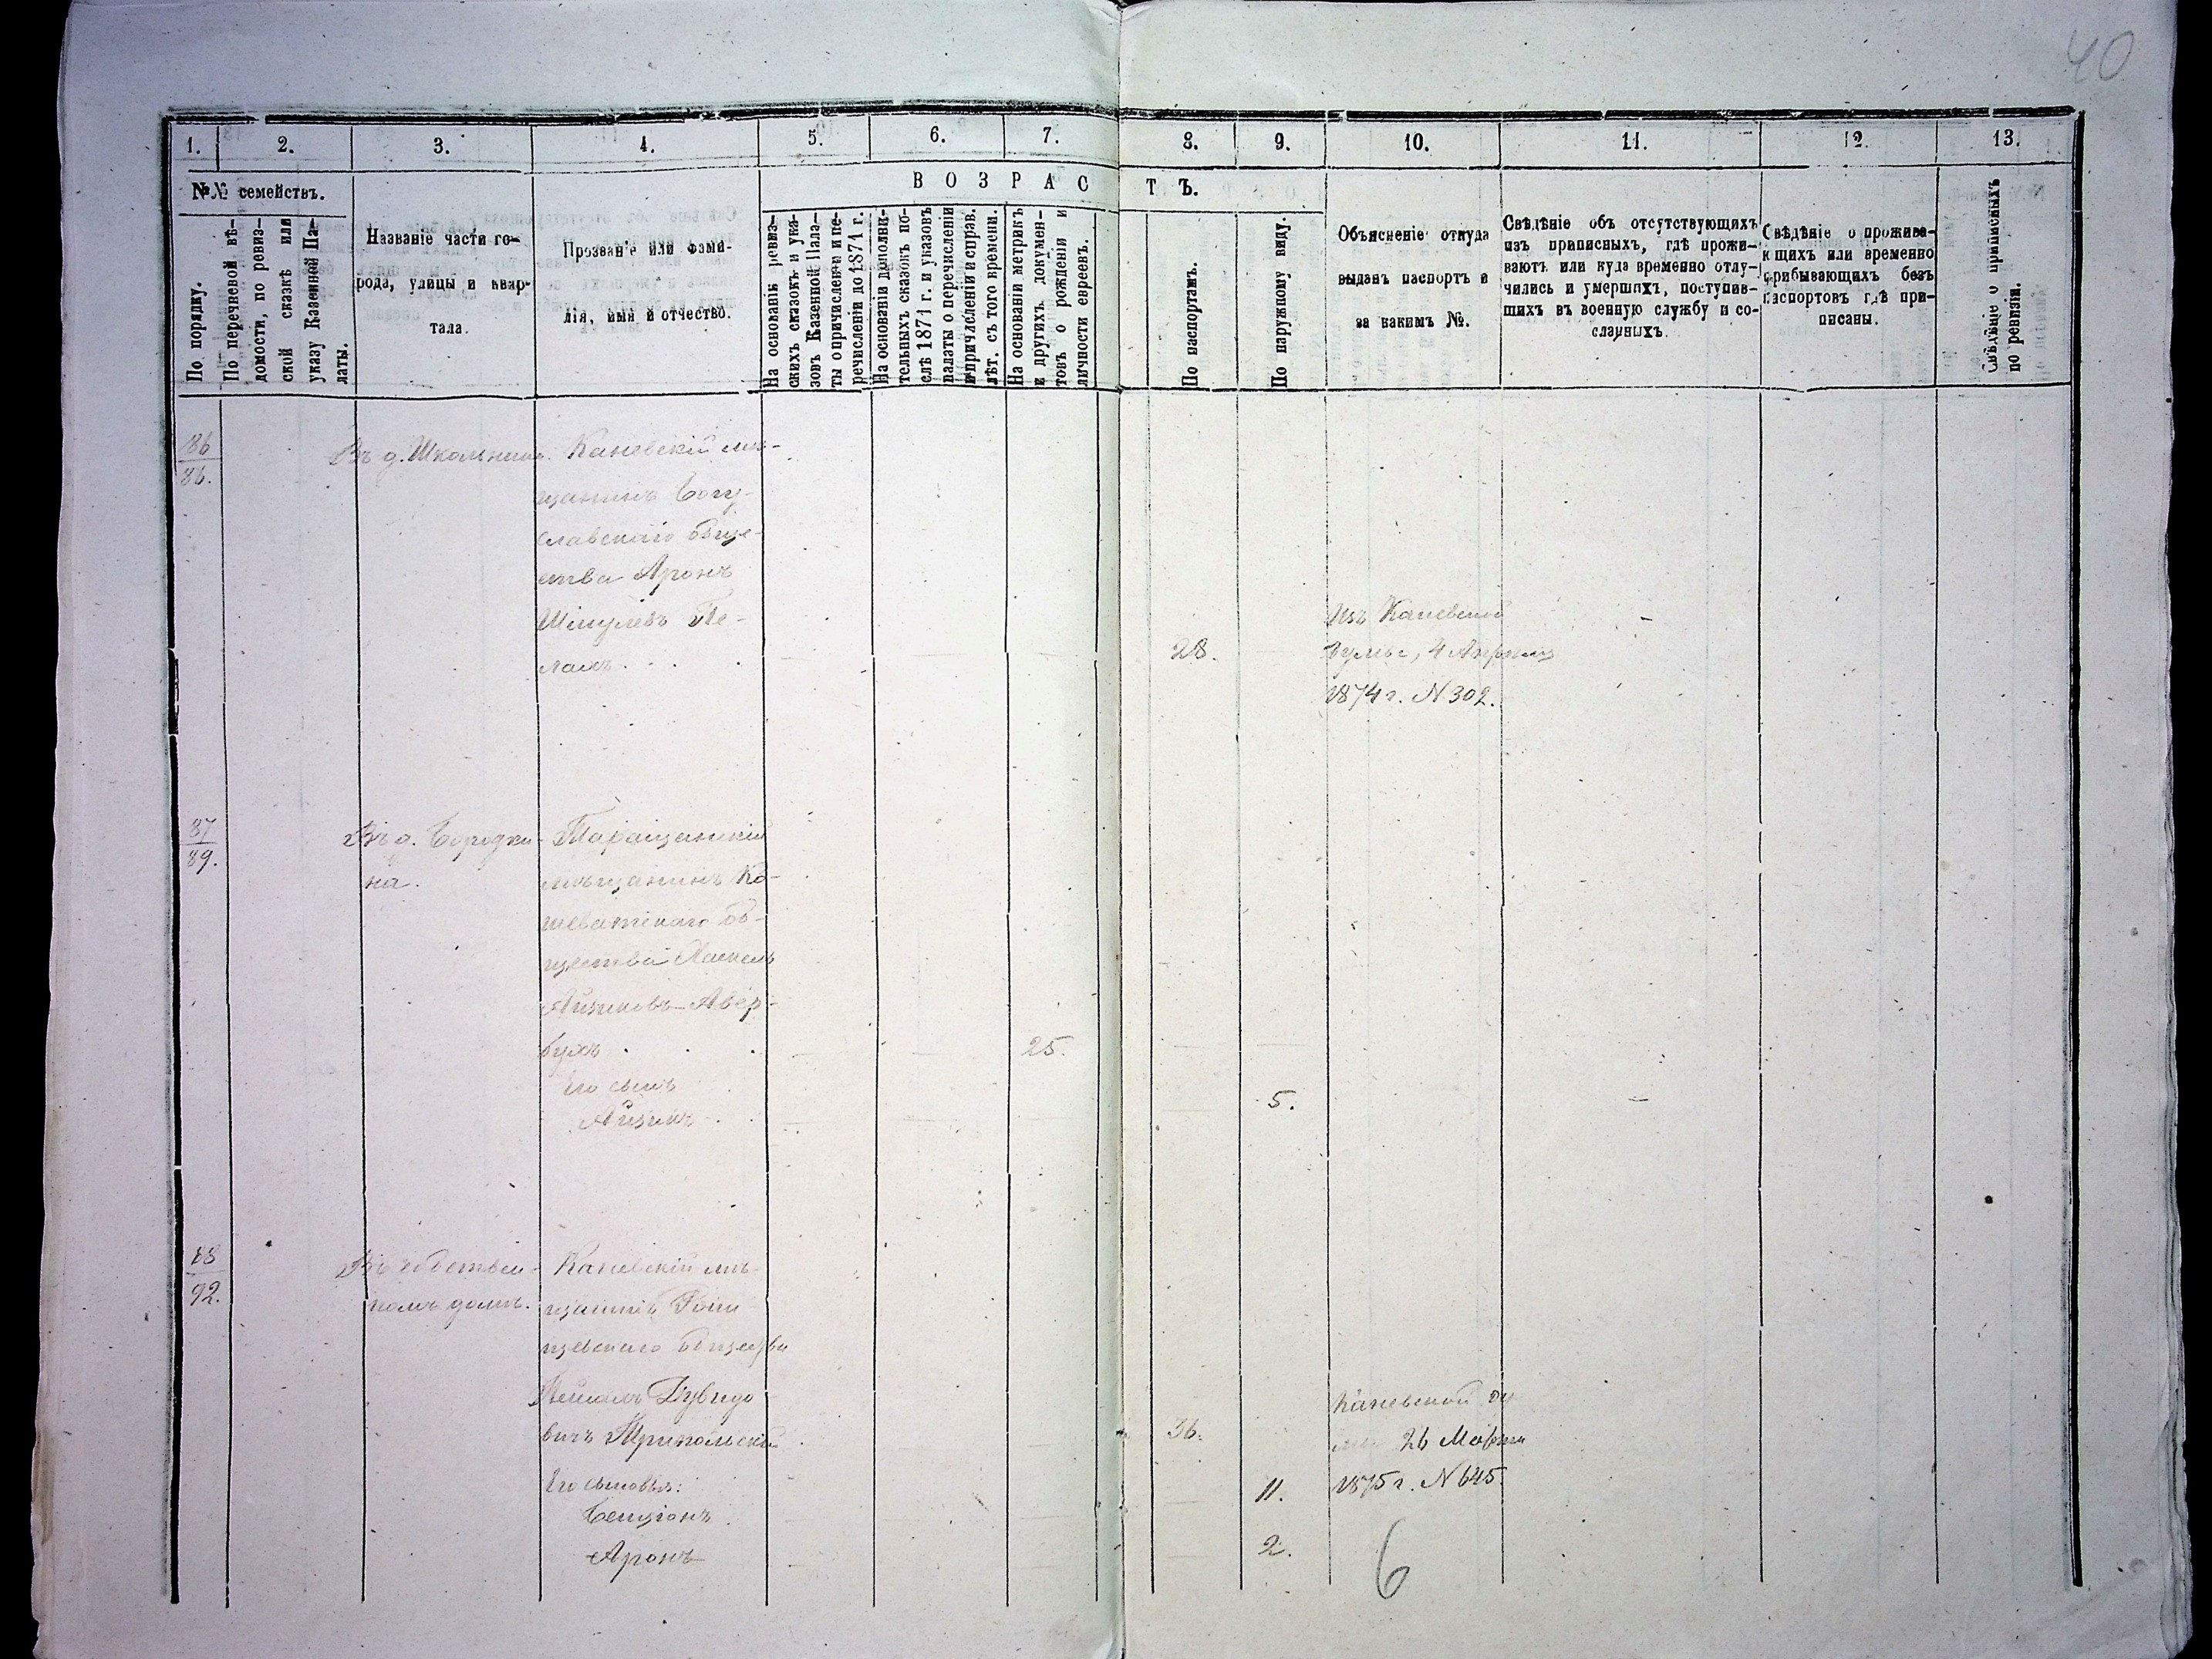 40
1. 2. 3. 4. 5. 6. 7. 8. 9. 10. 11. 12. 13.
№№ семействъ.
По порядку.
По перечневой вѣ-
домости, по ревиз-
ской сказкѣ или
указу Казенной Па-
латы.
Названіе части го-
рода, улицы и квар-
тала.
Прозваніе или фами-
лія, имя и отчество.
ВОЗРАСТЪ.
На основаніи ревиз-
скихъ сказокъ и ука-
зовъ Казенной Пала-
ты о причисленіи и пе-
речисленіи до 1871 г.
На основаніи дополни-
тельныхъ сказокъ по-
слѣ 1871 г. и указовъ
палаты о перечисленіи
и причисленіи и справ.
лѣт. съ того времени.
На основаніи метрикъ
и другихъ докумен-
товъ о рожденіи и
личности евреевъ.
По паспортамъ.
По наружному виду.
Объясненіе откуда
выданъ паспортъ и
за какимъ №.
Свѣдѣніе объ отсутствующихъ
изъ приписныхъ, гдѣ прожи-
ваютъ или куда временно отлу-
чились и умершихъ, поступив-
шихъ въ военную службу и со-
сланныхъ.
Свѣдѣніе о прожива-
ющихъ или временно
прибывающихъ безъ
паспортовъ гдѣ при-
писаны.
Свѣдѣніе о приписныхъ
по ревизіи.
86
86.
Въ д. Школьника.
Каневскій мѣ-
щанинъ Богу-
славскаго обще-
ства Аронъ
Шмулевъ Пе-
лахъ.
28.
Изъ Каневской
Думы, 4 Апрѣля
1874 г. N 302.
87
89.
Въ д. Бородки-
на.
Таращанскій
мѣщанинъ Ко-
шеватскаго об-
щества Хаскель
Айзиковъ Авер-
бухъ
25.
Его сынъ
Айзикъ
5.
88
92.
Въ собствен-
номъ домѣ.
Каневскій мѣ-
щанинъ
щевскаго общества
Дувидо
вичъ Трипольскій
36.
Каневской Ду
мы 26 Марта
1875 г. N 645.
Его сыновья:
Бенціонъ
11.
Аронъ
2.
6